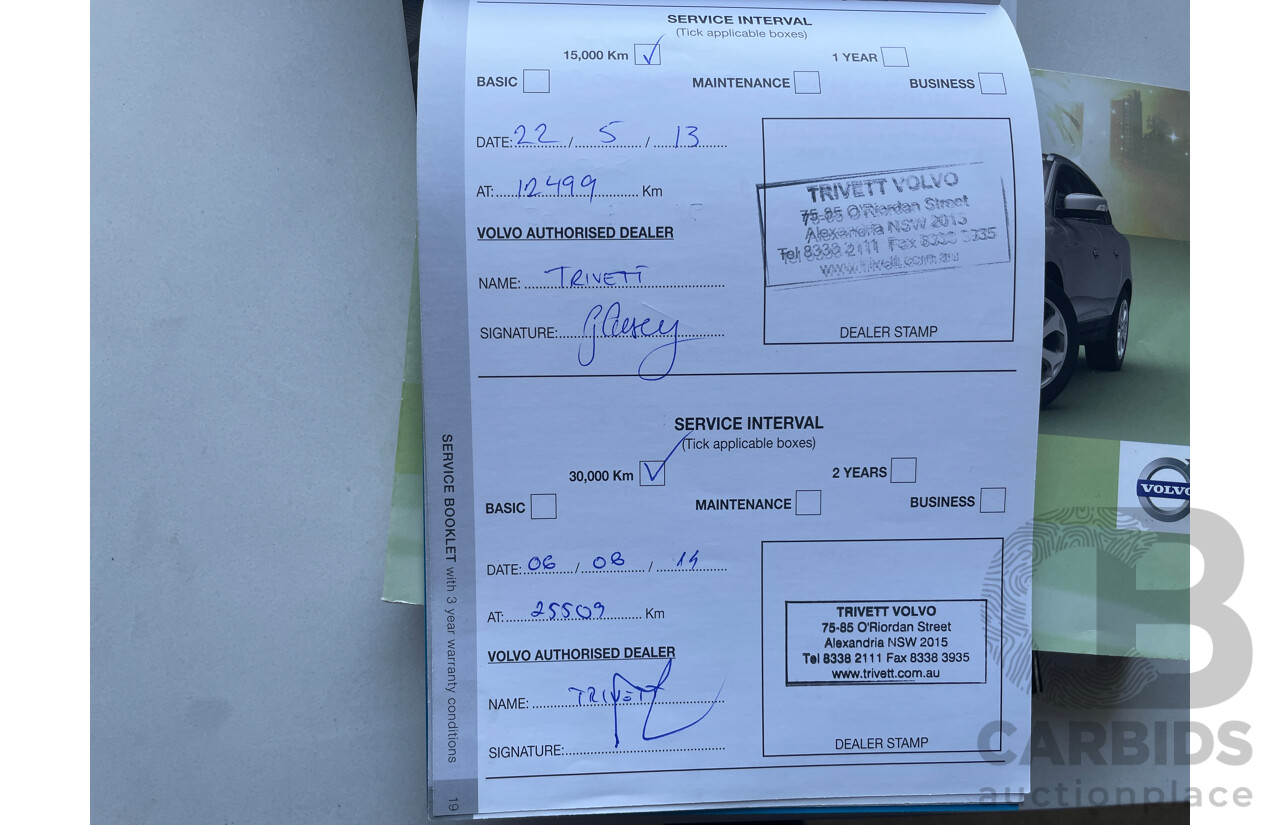 SERVICE INTERVAL
(Tick applicable boxes)
15,000 Km 1 YEAR
BASIC MAINTENANCE BUSINESS
DATE: 22 / 5 / 13
AT: 12499 Km
VOLVO AUTHORISED DEALER
NAME: TRIVETT
SIGNATURE:
TRIVETT VOLVO
75-85 O'Riordan Street
Alexandria NSW 2015
Tel 8338 2111 Fax 8338 3935
www.trivett.com.au
DEALER STAMP
SERVICE INTERVAL
(Tick applicable boxes)
30,000 Km 2 YEARS
BASIC MAINTENANCE BUSINESS
DATE: 06 / 08 / 14
AT: 25509 Km
VOLVO AUTHORISED DEALER
NAME: TRIVETT
SIGNATURE:
TRIVETT VOLVO
75-85 O'Riordan Street
Alexandria NSW 2015
Tel 8338 2111 Fax 8338 3935
www.trivett.com.au
DEALER STAMP
SERVICE BOOKLET with 3 year warranty conditions
19
VOLVO
CARBIDS
auctionplace